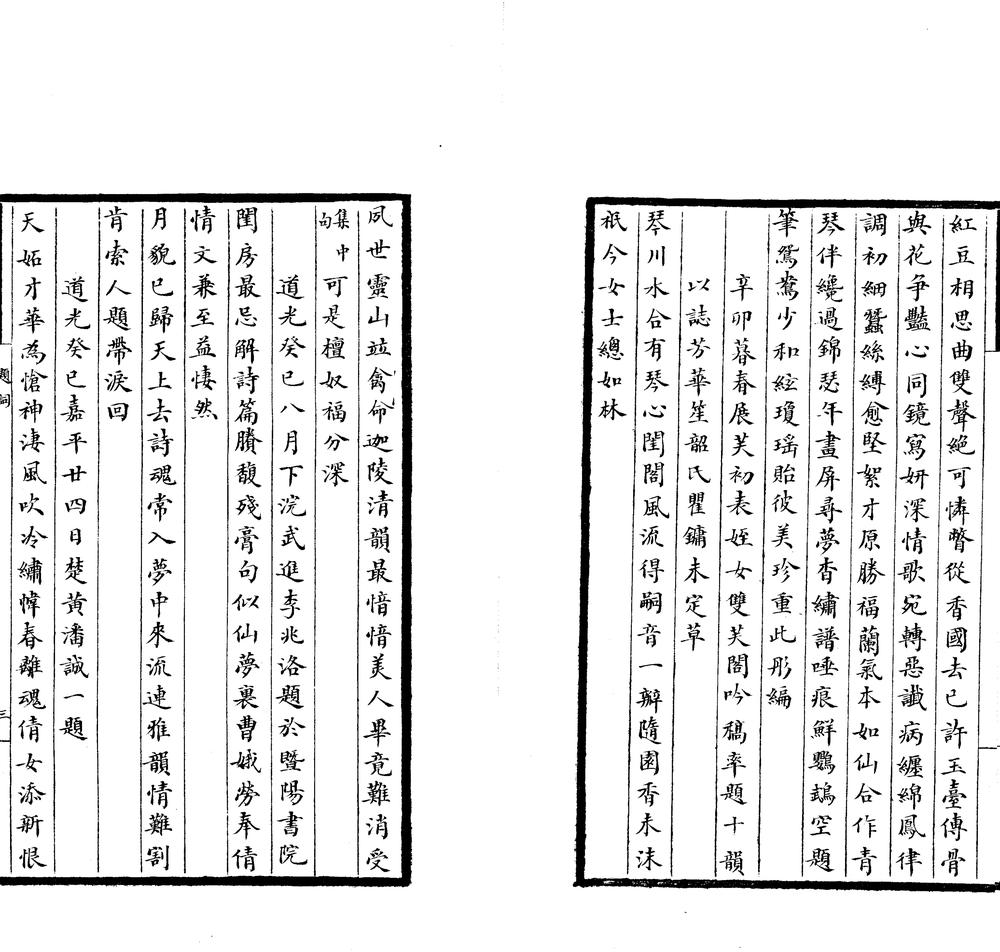 紅豆相思曲雙聲絕可憐瞥從香國去已許玉臺傳骨
與花爭豔心同鏡寫妍深情歌宛轉惡讖病纏綿鳳律
調初細蠶絲縛愈堅絮才原勝福蘭氣本如仙合作青
琴伴纔過錦瑟年畫屏尋夢杳繡譜唾痕鮮鸚鵡空題
筆鴛鴦少和絃瓊瑤貽彼美珍重此彤編
辛卯暮春展芙初表姪女雙芙閣吟稿率題十韻
以誌芳華笙韶氏瞿鏞未定草
琴川水合有琴心閨閤風流得嗣音一瓣隨園香未沫
祇今女士總如林
夙世靈山竝命禽迦陵清韻最愔愔美人畢竟難消受
集中句可是檀奴福分深
道光癸巳八月下浣武進李兆洛題於曁陽書院
閨房最忌解詩篇賸馥殘膏句似仙夢裏曹娥勞奉倩
情文兼至益悽然
月貌已歸天上去詩魂常入夢中來流連雅韻情難割
肯索人題帶淚回
道光癸巳嘉平廿四日楚黃潘誠一題
天妬才華為愴神淒風吹冷繡幃春離魂倩女添新恨
題詞
三